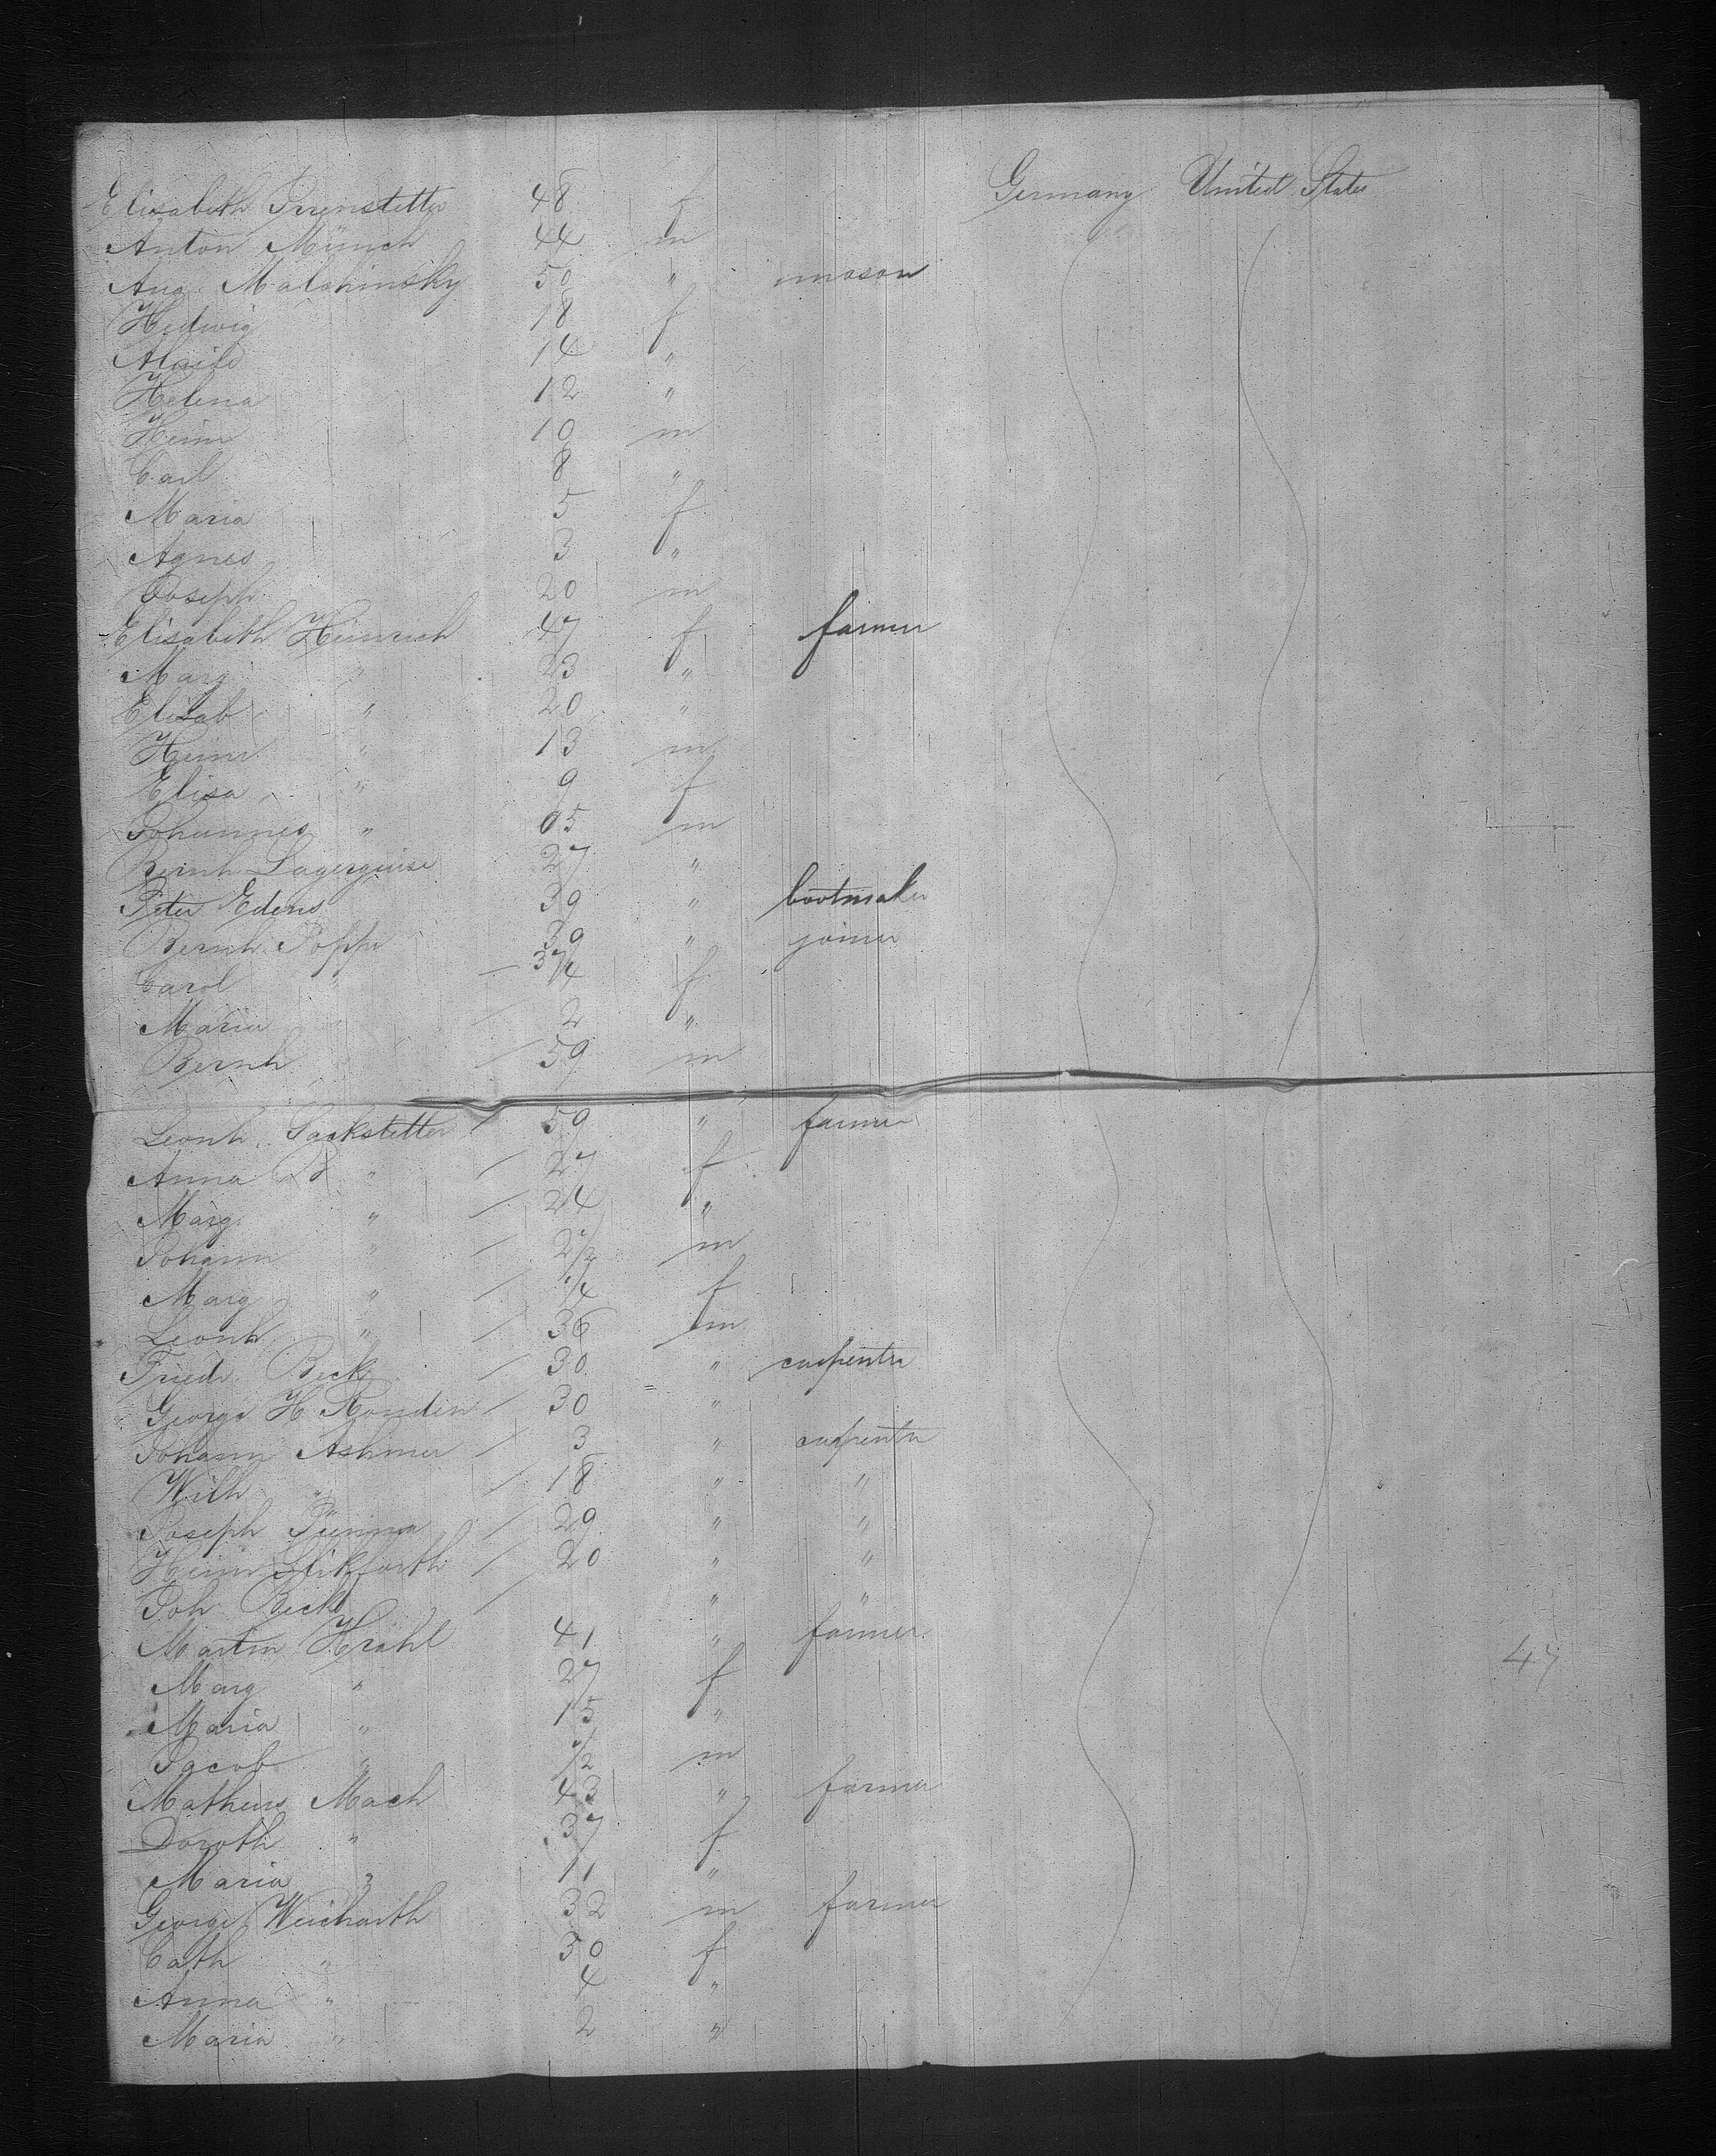 Elisabeth Irrenstetter 48 f Germany United States
Anton Münch 44 m
Aug. Malahinsky 50 " mason
Hedwig 18 f
14 "
Helena 12 "
Heinr 10 m
Carl 8 "
Maria 5 f
Agnes 3 "
Joseph 20 m
Elisabeth Heinrich 47 f farmer
Marg " 23 "
Elisab " 20 "
Heinr " 13 m
Elisa " 9 f
Johannes " 65 m
Bernh 27 "
Peter Edens 39 " bootmaker
Bernh Poppe 39 " joiner
Carol " f
Maria " 2 "
Bernh " 59 m
Leonh. Sackstetter 59 " farmer
Anna B " 27 f
Marg " 24 "
Johann " m
Marg " f
Leonh " 36 m
Friedr. Beck 30 " carpenter
George H. 30 "
Johann Ashmer 3 " carpenter
Wilh " 18 " "
Joseph 29 " "
Heinr 20 " "
Joh Beckl " "
Martin Krahl 41 " farmer
Marg " 27 f 47
Maria " 15 "
Jacob " 1/2 m
Matheus Mach 43 " farmer
Doroth " 37 f
Maria " 11 "
George Weicharth 32 m farmer
Cath " 30 f
Anna " 4 "
Maria " 2 "